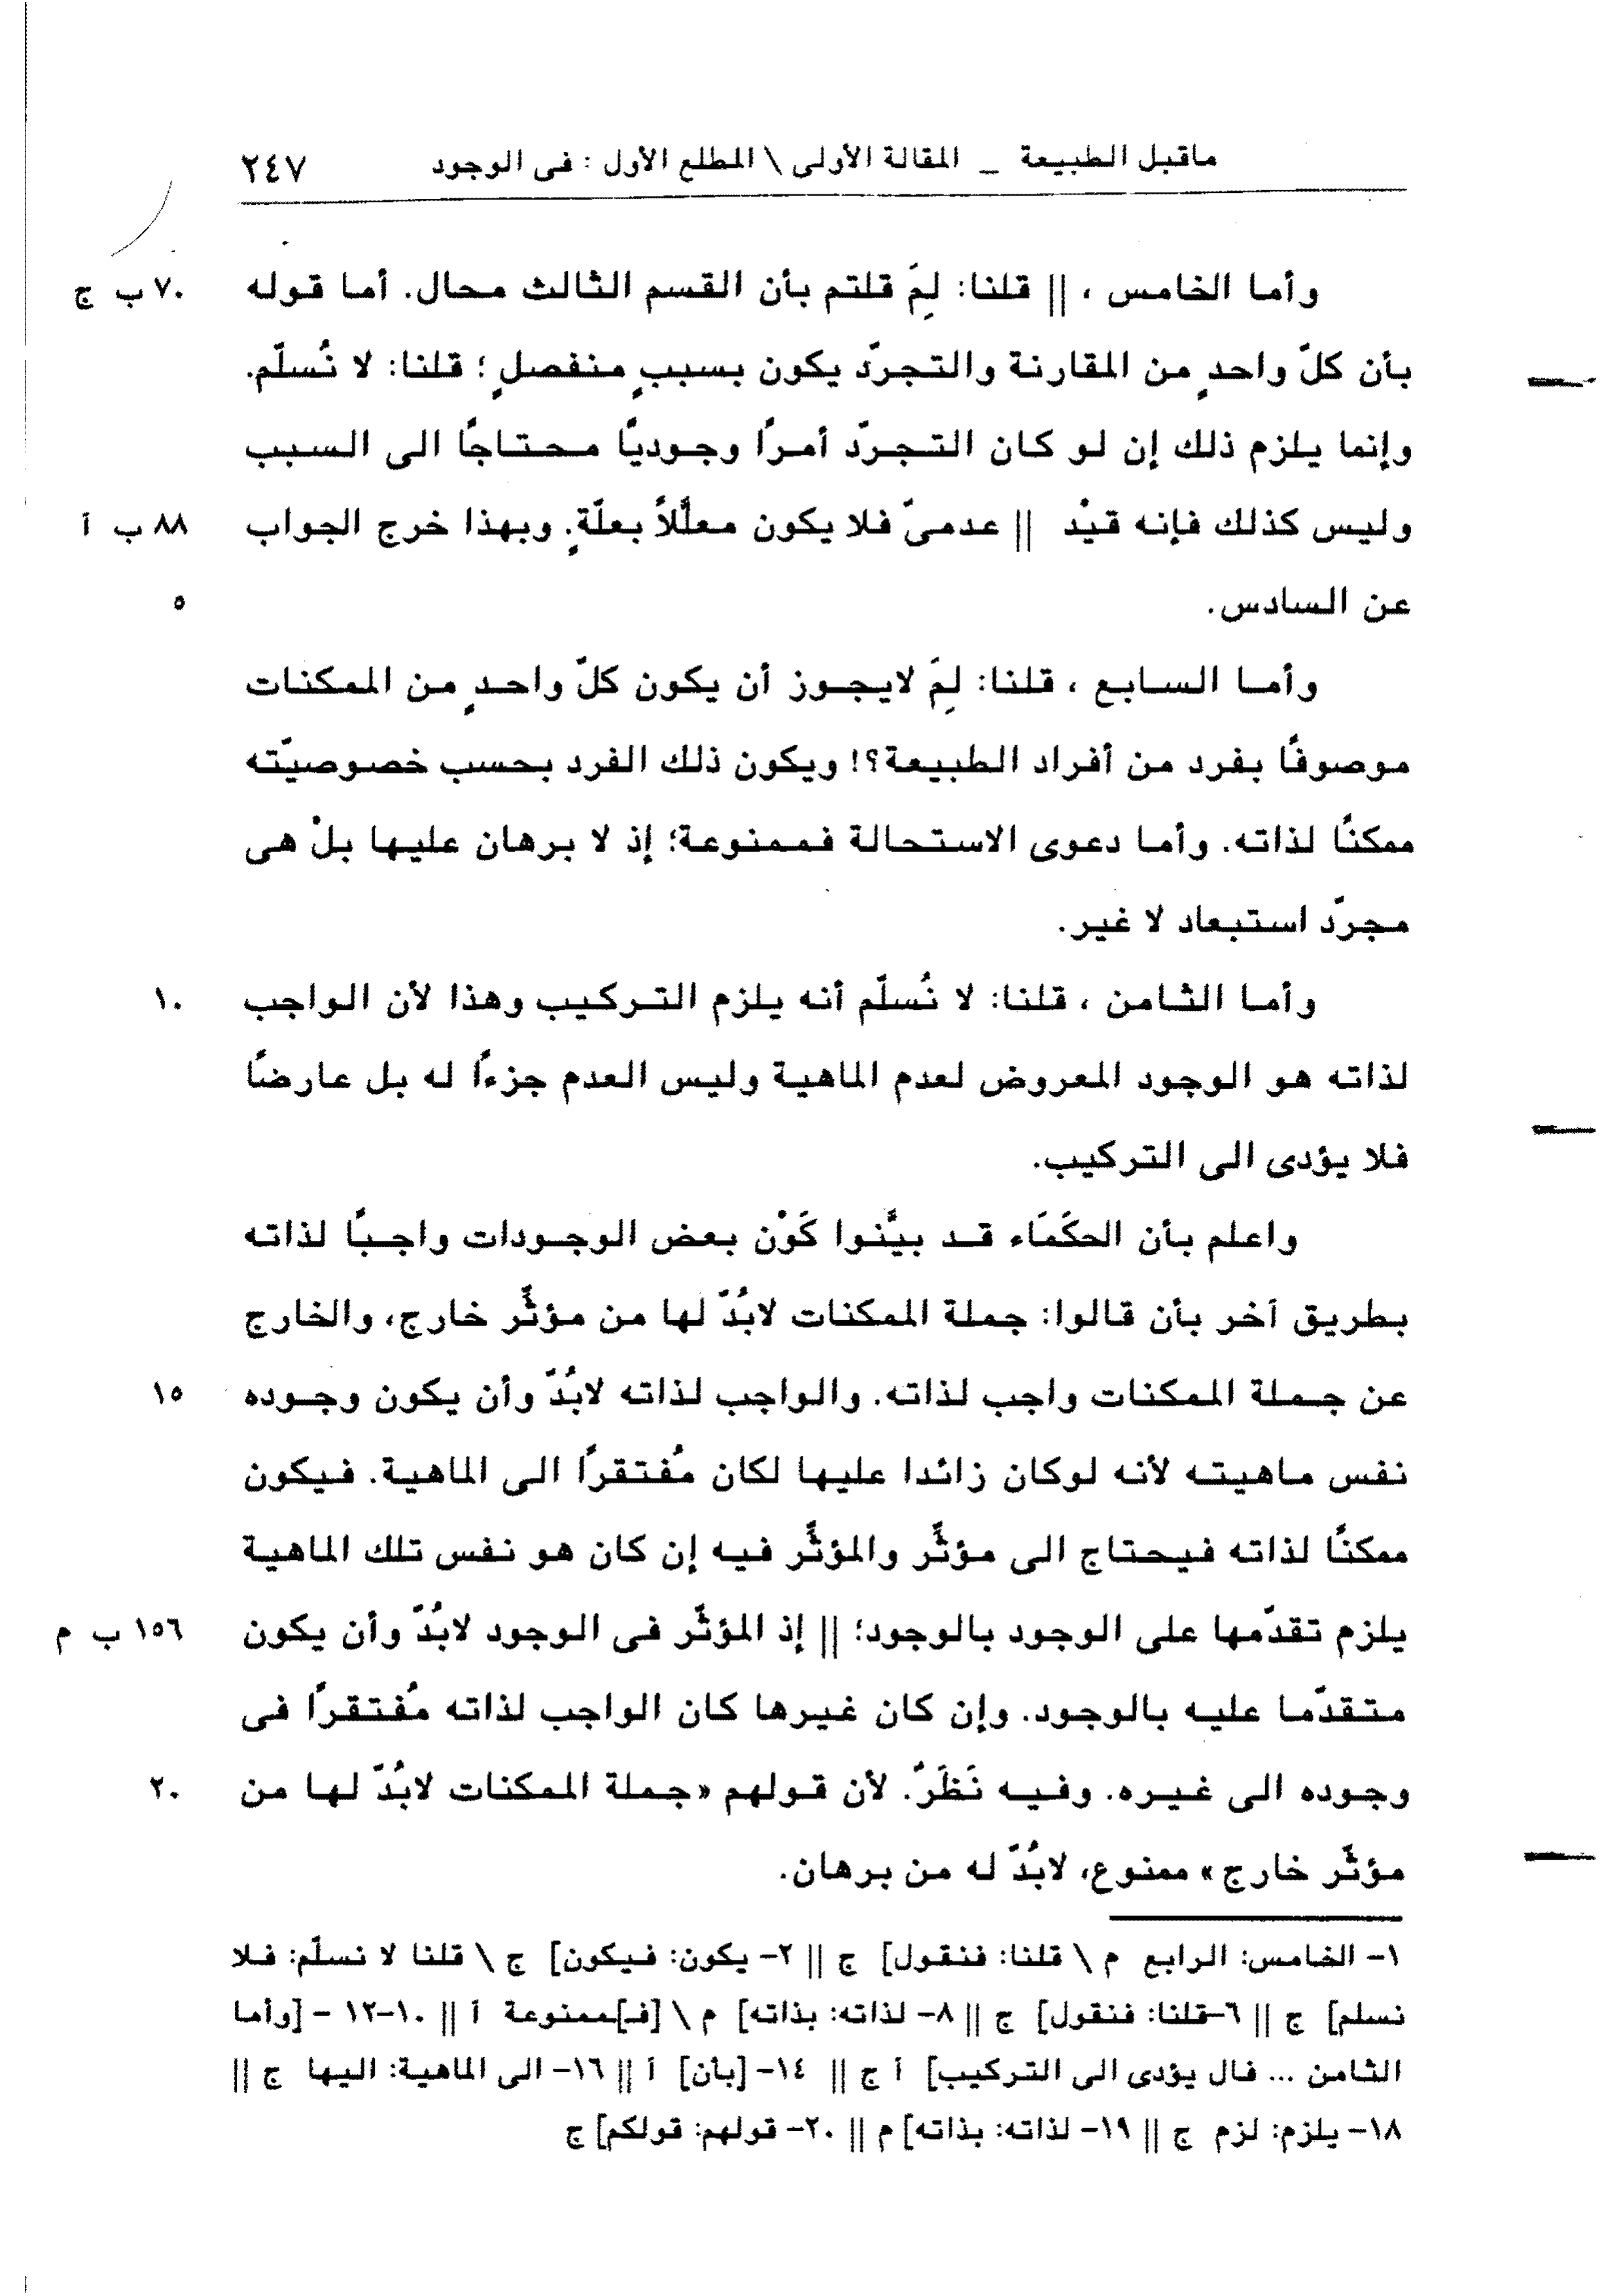 ماقبل الطبيعة _ المقالة الأولى \ المطلع الأول : فى الوجود ٢٤٧
وأما الخامس ، || قلنا: لِمَ قلتم بأن القسم الثالث محال. أما قوله ٧٠ ب ج
بأن كلّ واحدٍ من المقارنة والتجرّد يكون بسببٍ منفصلٍ ؛ قلنا: لا نُسلّم.
وإنما يلزم ذلك إن لو كان التجرّد أمرًا وجوديًا محتاجًا الى السبب
وليس كذلك فإنه قيْد || عدمىّ فلا يكون معلَّلاً بعلّةٍ. وبهذا خرج الجواب ٨٨ ب آ
عن السادس. ٥
وأما السابع ، قلنا: لِمَ لايجوز أن يكون كلّ واحدٍ من الممكنات
موصوفًا بفرد من أفراد الطبيعة؟! ويكون ذلك الفرد بحسب خصوصيّته
ممكنًا لذاته. وأما دعوى الاستحالة فممنوعة؛ إذ لا برهان عليها بلْ هى
مجرّد استبعاد لا غير.
وأما الثامن ، قلنا: لا نُسلّم أنه يلزم التركيب وهذا لأن الواجب ١٠
لذاته هو الوجود المعروض لعدم الماهية وليس العدم جزءًا له بل عارضًا
فلا يؤدى الى التركيب.
واعلم بأن الحكَمَاء قد بيَّنوا كَوْن بعض الوجودات واجبًا لذاته
بطريق آخر بأن قالوا: جملة الممكنات لابُدّ لها من مؤثِّر خارج، والخارج
عن جملة الممكنات واجب لذاته. والواجب لذاته لابُدّ وأن يكون وجوده ١٥
نفس ماهيته لأنه لوكان زائدا عليها لكان مُفتقرًا الى الماهية. فيكون
ممكنًا لذاته فيحتاج الى مؤثِّر والمؤثِّر فيه إن كان هو نفس تلك الماهية
يلزم تقدّمها على الوجود بالوجود؛ || إذ المؤثّر فى الوجود لابُدّ وأن يكون ١٥٦ ب م
متقدّما عليه بالوجود. وإن كان غيرها كان الواجب لذاته مُفتقرًا فى
وجوده الى غيره. وفيه نَظَرٌ. لأن قولهم «جملة الممكنات لابُدّ لها من ٢٠
مؤثّر خارج» ممنوع، لابُدّ له من برهان.
١- الخامس: الرابع م \ قلنا: فنقول] ج || ٢- يكون: فيكون] ج \ قلنا لا نسلّم: فلا
نسلم] ج || ٦-قلنا: فنقول] ج || ٨- لذاته: بذاته] م \ [فـ]ممنوعة آ || ١٠-١٢ - [وأما
الثامن ... فال يؤدى الى التركيب] آ ج || ١٤- [بأن] آ || ١٦- الى الماهية: اليها ج ||
١٨- يلزم: لزم ج || ١٩- لذاته: بذاته] م || ٢٠- قولهم: قولكم] ج